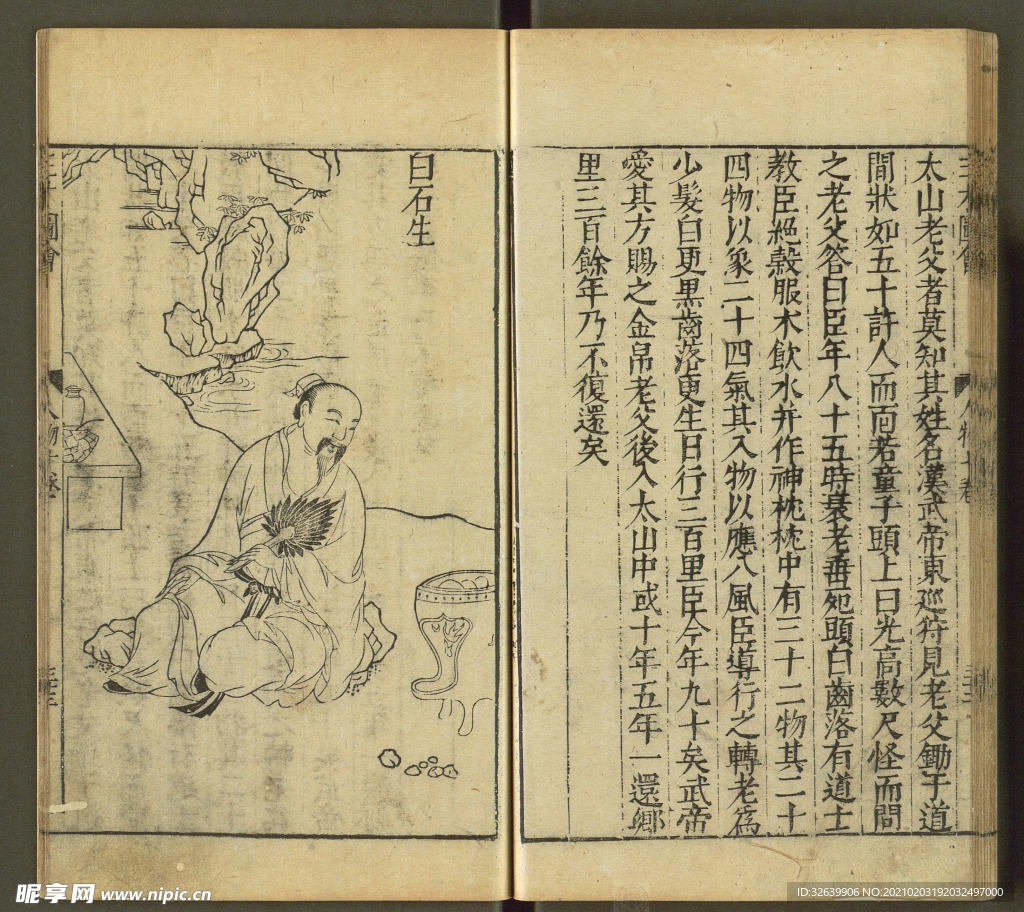 三才圖會
人物十卷
太山老父者莫知其姓名漢武帝東巡狩見老父鋤于道
間狀如五十許人而面若童子頭上曰光高數尺怪而問
之老父答曰臣年八十五時衰老垂死頭白齒落有道士
教臣絕穀服木飲水并作神枕枕中有三十二物其二十
四物以象二十四氣其入物以應八風臣導行之轉老為
少髮白更黑齒落更生日行三百里臣今年九十矣武帝
愛其方賜之金帛老父後入太山中或十年五年一還鄉
里三百餘年乃不復還矣
白石生
圖會
人物十卷
昵享网 www.nipic.cn
ID:32639906 NO:20210203192032497000